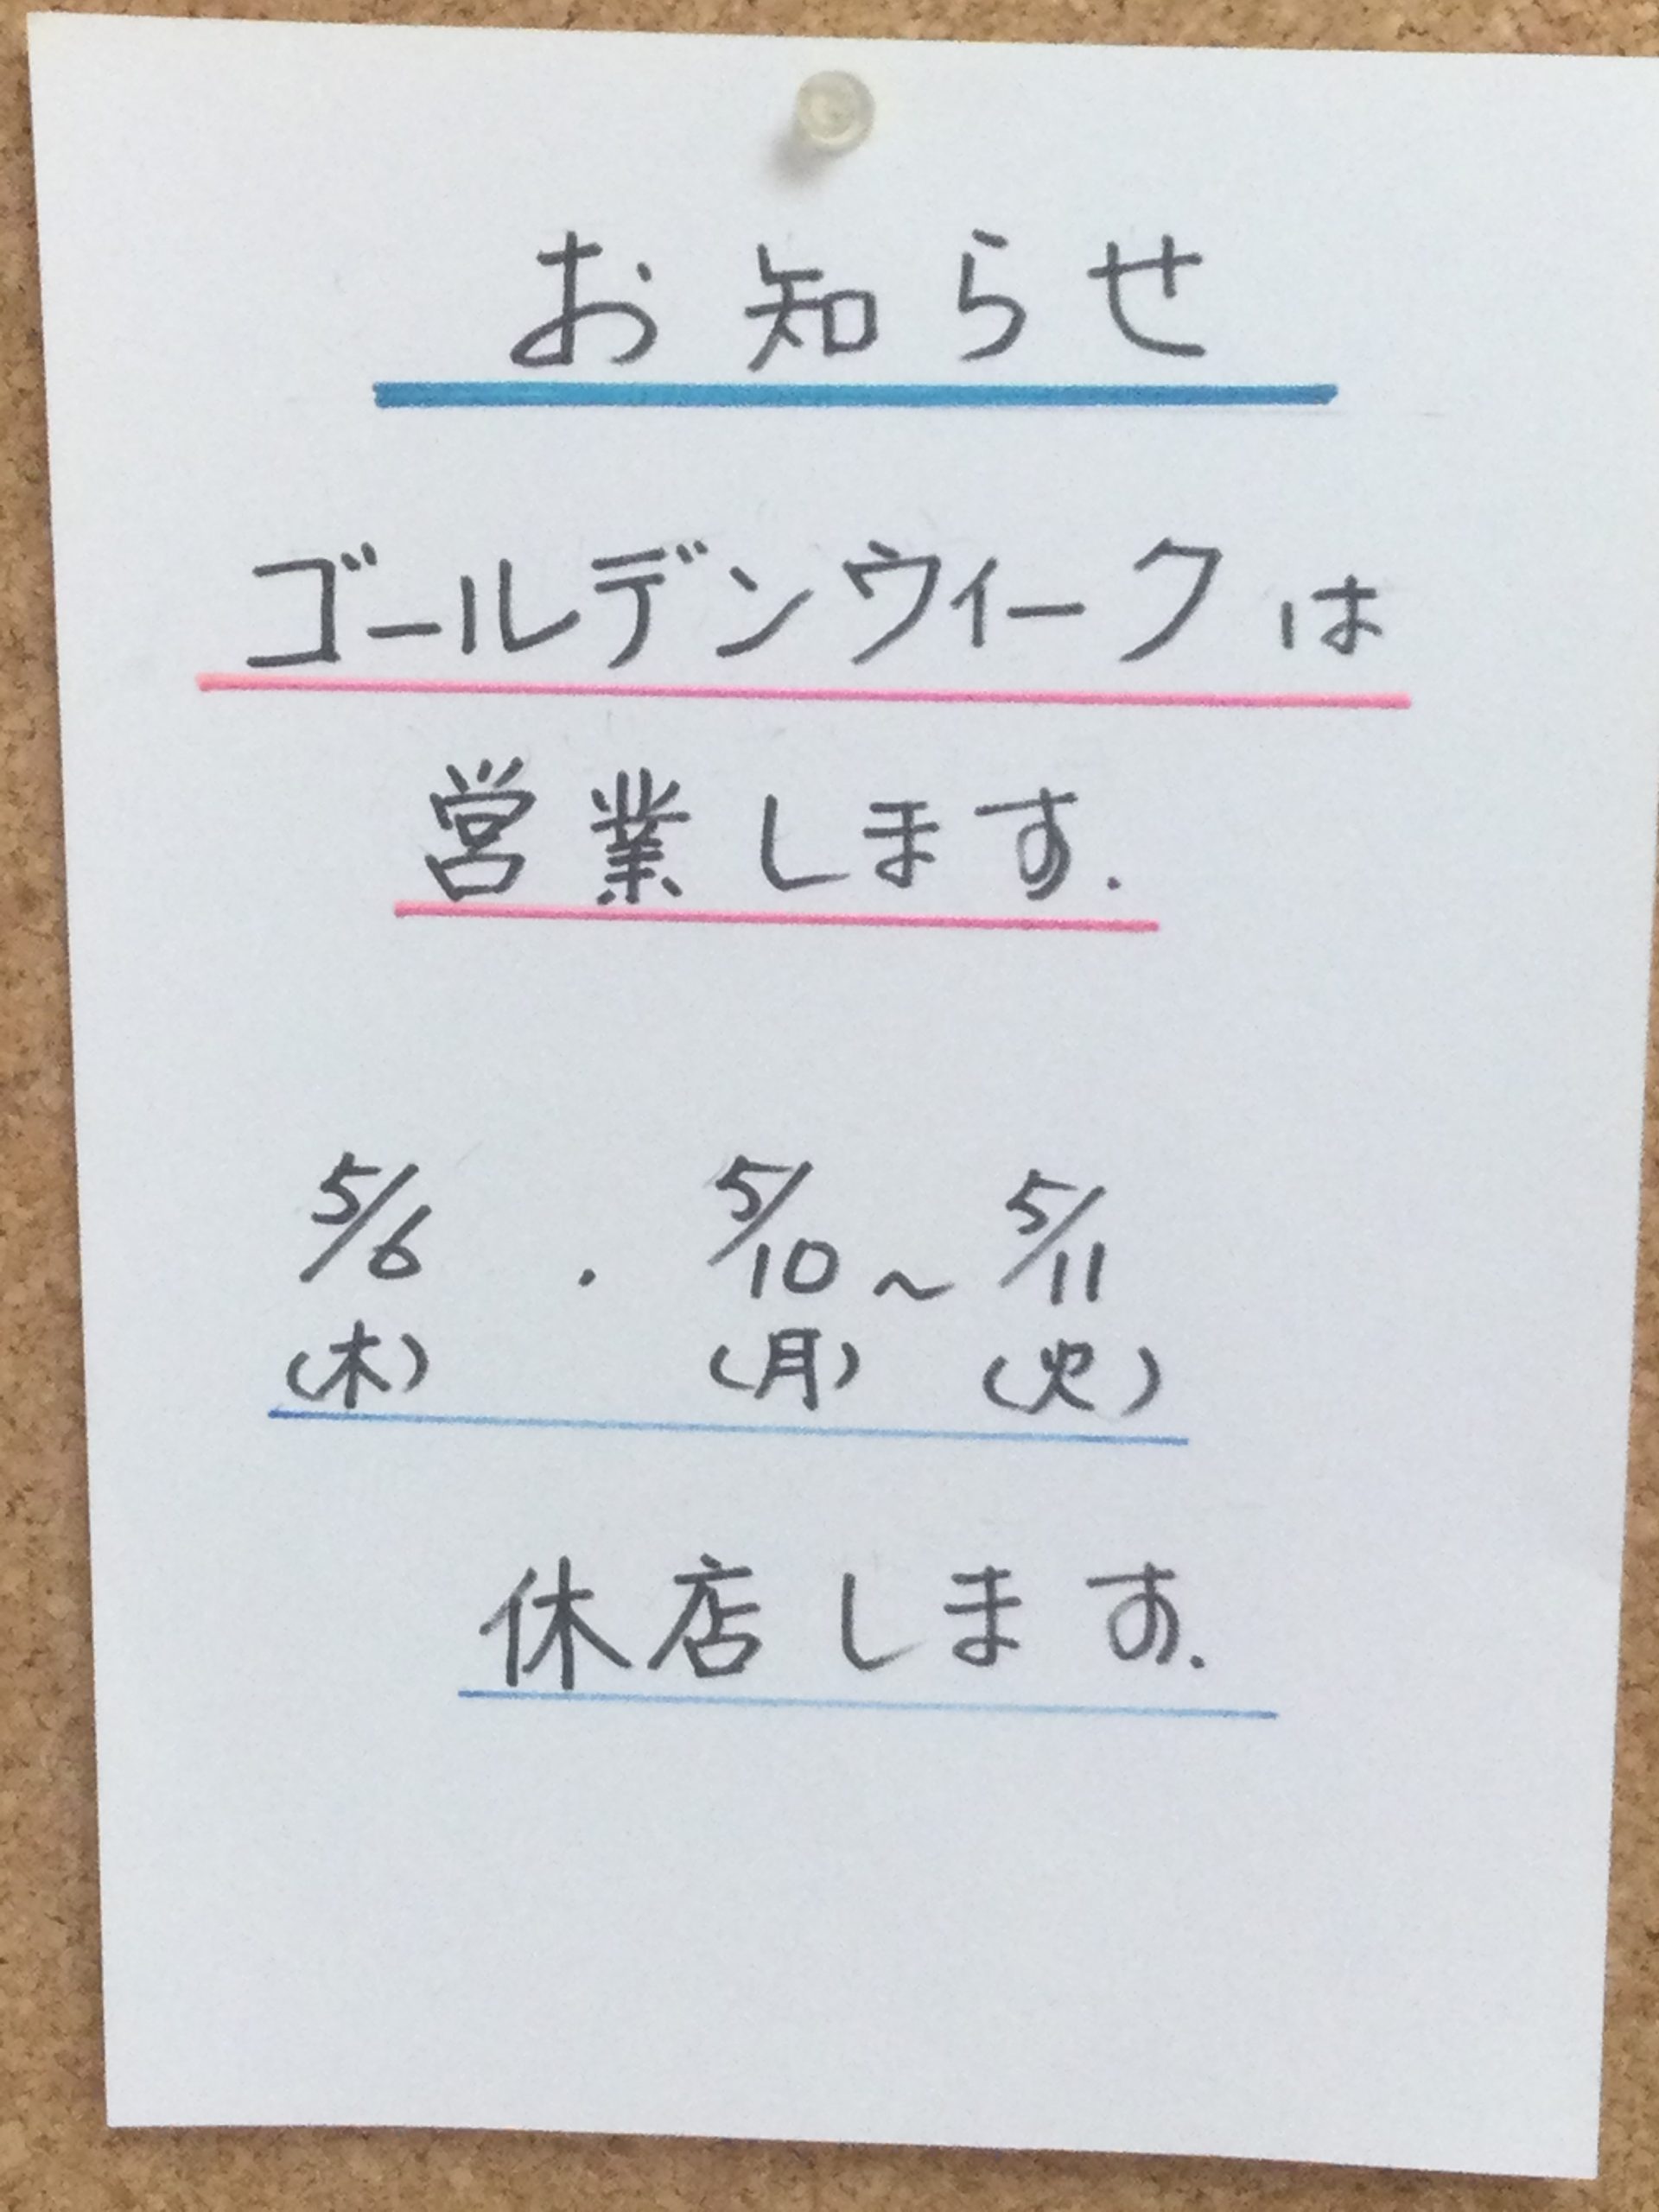 お知らせ
ゴールデンウィークは
営業します.
5/6 ・ 5/10 ~ 5/11
(木) (月) (火)
休店します.